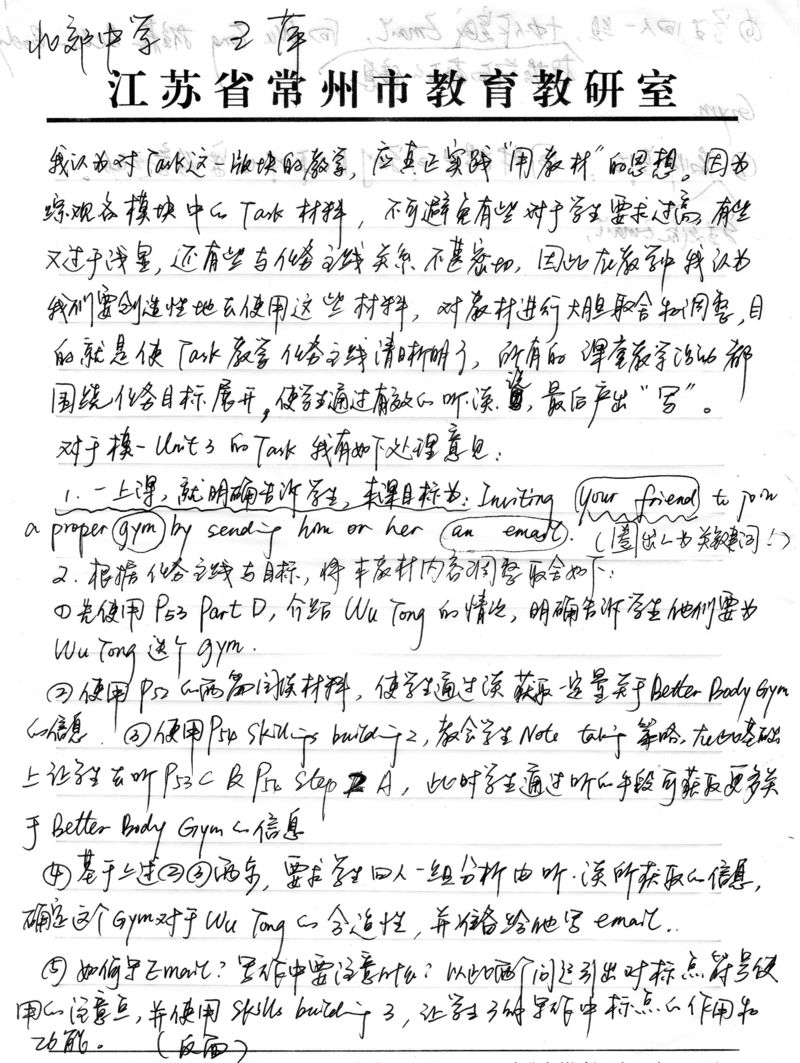 北郊中学 王萍
江苏省常州市教育教研室
我认为对Task这一版块的教学，应真正实践“用教材”的思想。因为
综观各模块中的Task材料，不可避免有些对于学生要求过高，有些
又过于浅显，还有些与任务主线关系不甚密切，因此在教学中我认为
我们要创造性地去使用这些材料，对教材进行大胆取舍和调整，目
的就是使Task教学任务主线清晰明了，所有的课堂教学活动都
围绕任务目标展开，使学生通过有效的听读说，最后产出“写”。
对于模一Unit 3的Task我有如下处理意见：
1. 一上课，就明确告诉学生，本课目标为：Inviting your friend to join
a proper gym by sending him or her an email.（圈出的为关键词！）
2. 根据任务主线与目标，将本教材内容调整取舍如下：
①先使用P53 Part D，介绍Wu Tong的情况，明确告诉学生他们要为
Wu Tong选个gym.
②使用P52的两篇阅读材料，使学生通过读获取一定量关于Better Body Gym
的信息. ③使用P54 Skills building 2，教会学生Note taking策略，在此基础
上让学生去听P53 C 及P54 Step A，此时学生通过听的手段可获取更多关
于Better Body Gym的信息
④基于上述②③两步，要求学生四人一组分析由听.读所获取的信息，
确定这个Gym对于Wu Tong的合适性，并准备给他写email..
⑤如何写Email？写作中要注意什么？以此两个问题引出对标点符号使
用的注意点，并使用Skills building 3，让学生了解写作中标点的作用和
功能。（反面）